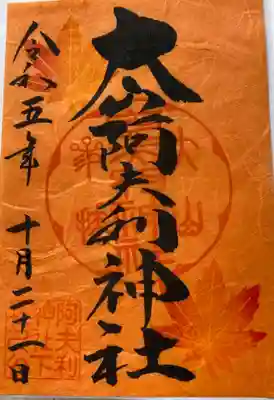 大山阿夫利神社
令和五年 十月二十一日
阿夫利
山下